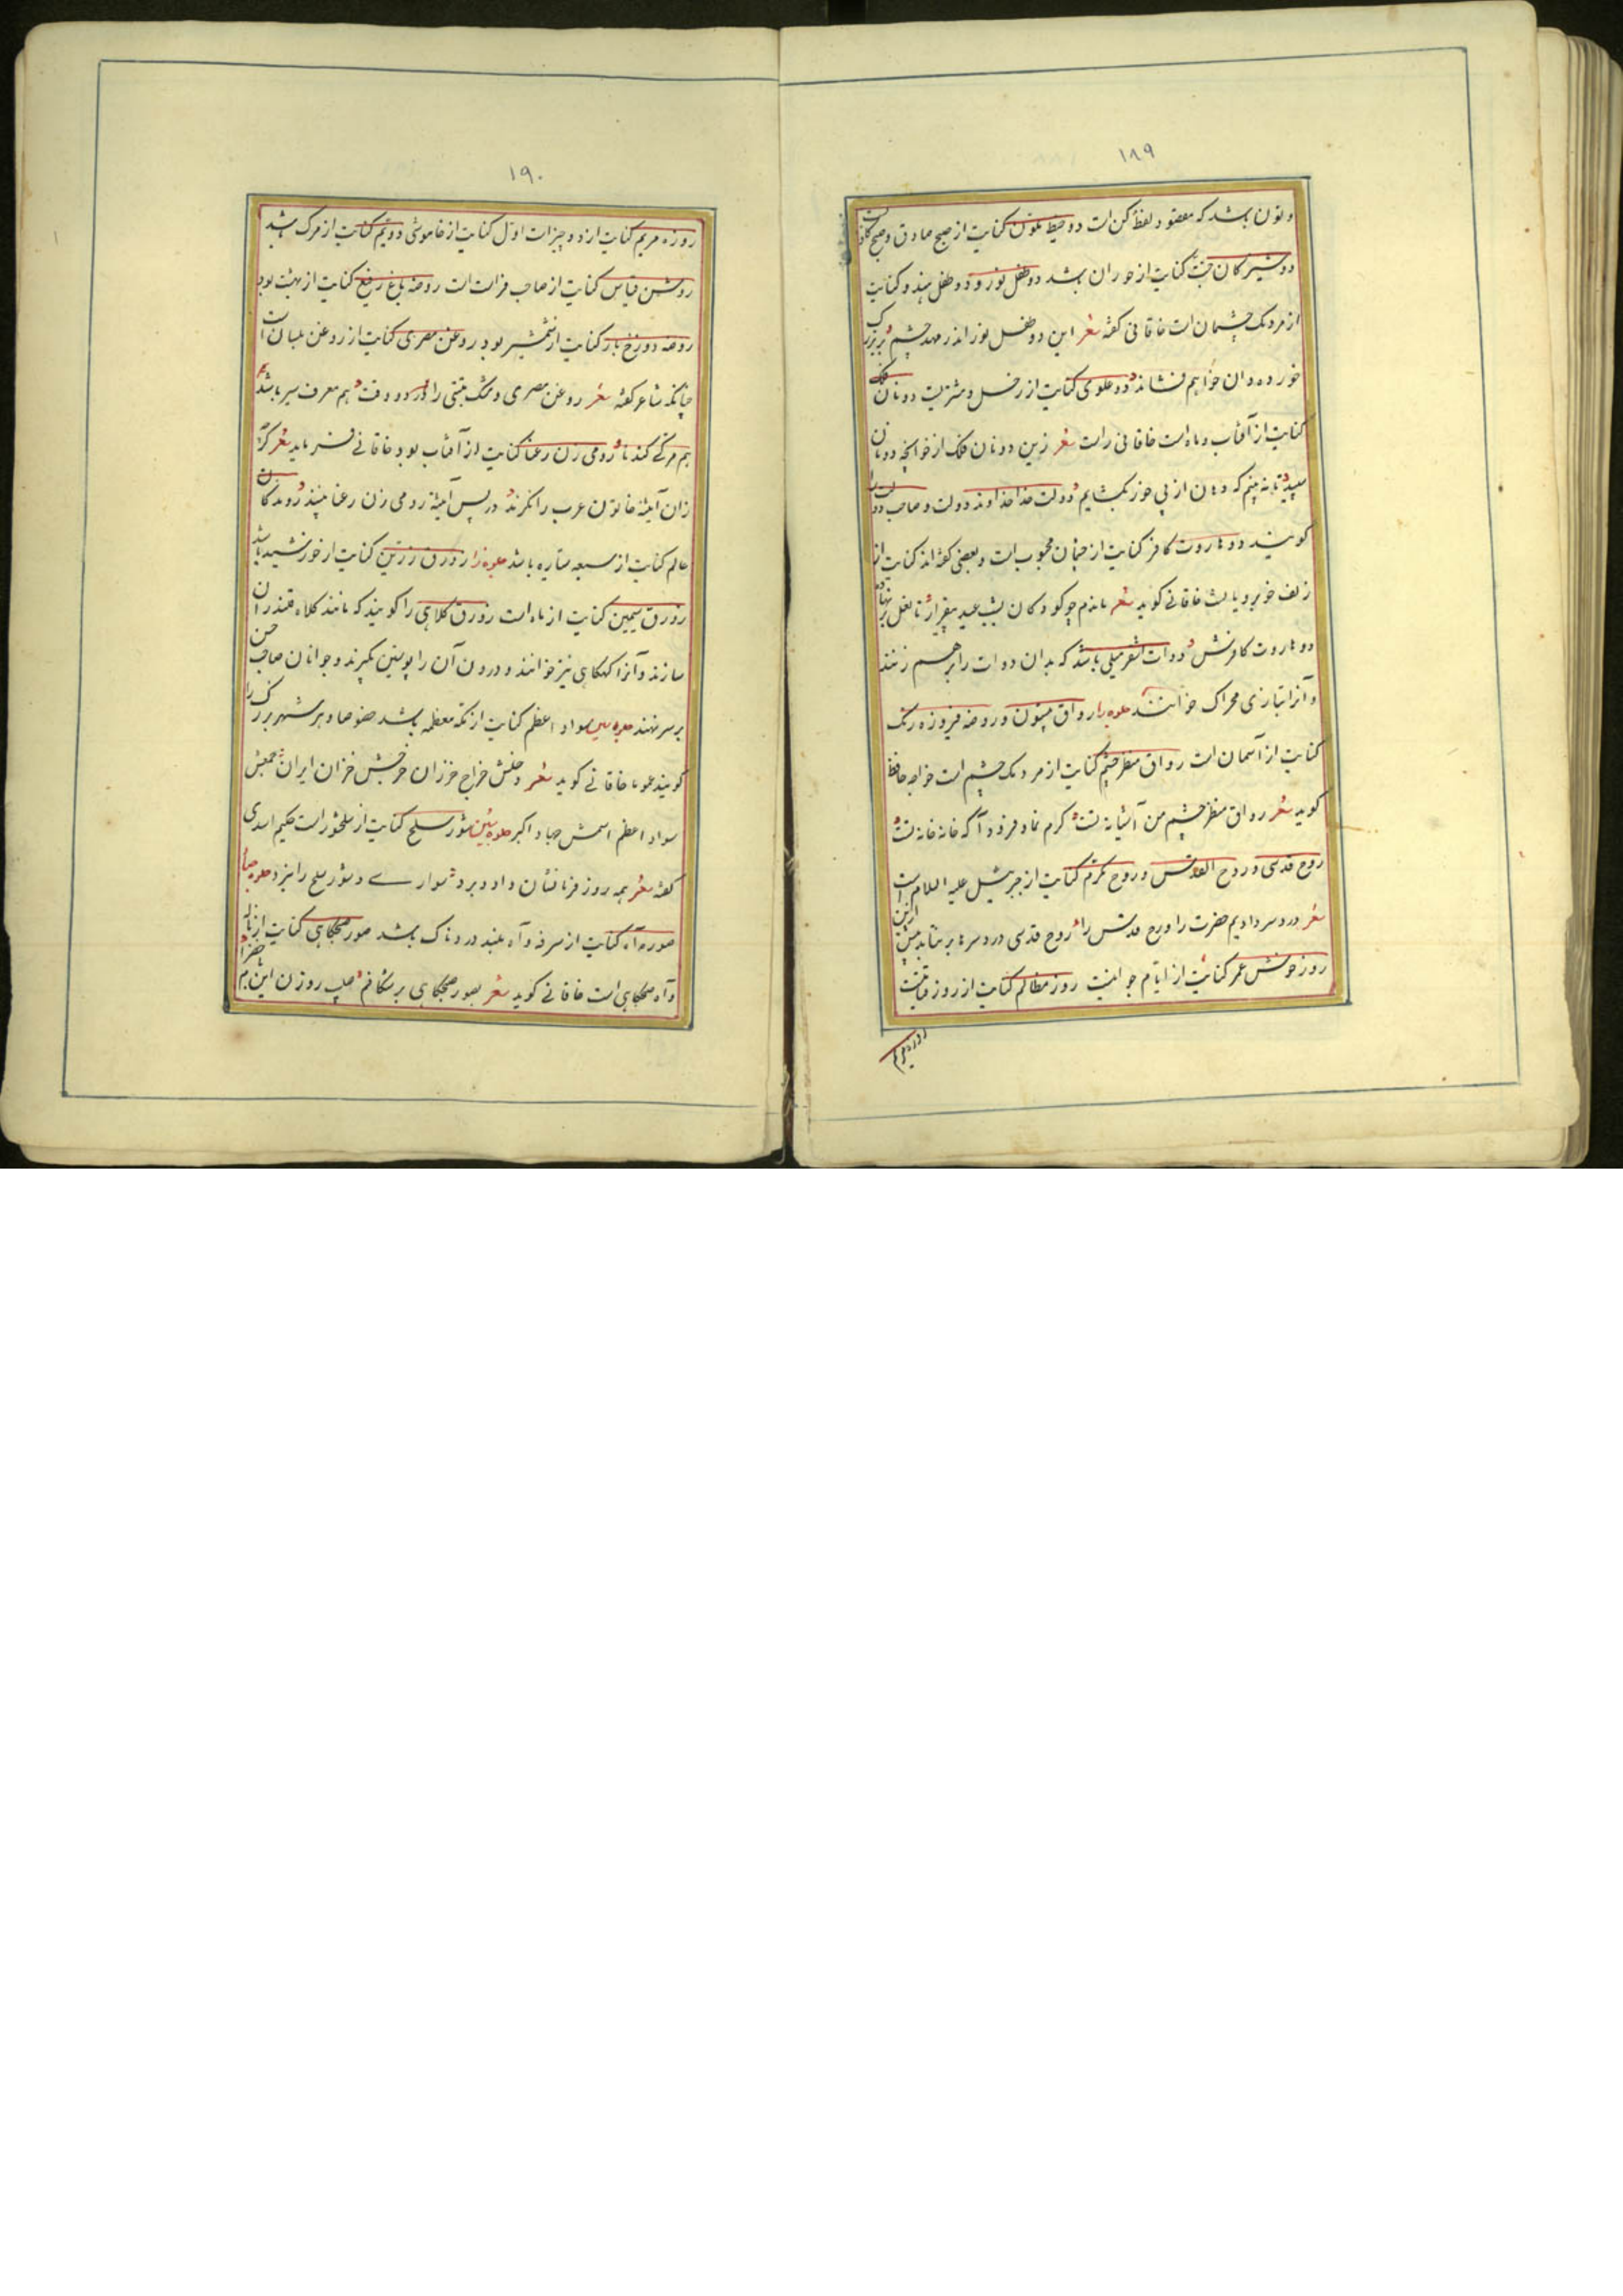 ۱۸۹
و نون باشد که مقصود لفظ کن است دو خیط ملون کنایت از صبح صادق و صبح کاذب است
دوشیزکان جنت کنایت از حوران باشد دو طفل نور و دو طفل هندو کنایت
از مردمک چشمان است خاقانی کفته شعر این دو طفل نور اندر مهد چشم بزرک
خورده دان خواهم فشاند دو علوی کنایت از زحل و مشتریست دو نان فلک
کنایت از آفتاب و ماه است خاقانی راست شعر زین دو نان فلک از خوانچه دونان
نه بینم که دهان از پی خور بکشایم دولت خدا خداوند دولت و صاحب دولت را
کویند دو هاروت کافر کنایت از چشمان محبوب است و بعضی کفته اند کنایت از
زلف خوبرویانست خاقانی کوید شعر ماندم چو کودکان بشب عید بیقرار تا نعل بر نهاد
دو هاروت کافرش دوات آشور میلی باشد که بدان دوات را برهم زنند
و آنرا بتازی محراک خوانند جلوه را رواق بیستون و روضه فیروزه رنک
کنایت از آسمان است رواق منظر چشم کنایت از مردمک چشم است خواجه حافظ
کوید شعر رواق منظر چشم من آشیانه تست کرم نما و فرود آ که خانه خانه تست
روح قدسی و روح القدس و روح مکرم کنایت از جبرئیل علیه السلام است
شعر دردسر دادیم حضرت را و روح قدس را روح قدسی دردسر برنتابد بیش ازین
روز خوش عمر کنایت از ایام جوانیست روز مظالم کنایت از روز قیامتست
روزه مریم
۱۹۰
روزه مریم کنایت از دو چیز است اول کنایت از خاموشی دویم کنایت از مرک باشد
روشن قیاس کنایت از صاحب فراست است روضه باغ رفیع کنایت از بهشت بود
روضه دوزخ بار کنایت از شمشیر بود روغن مصری کنایت از روغن بلسان است
چنانکه شاعر کفته شعر روغن مصری و مشک تبتی را در دو وقت هم معرف سیر باشد
هم مزکی کندنا رومی زن رعنا کنایت از آفتاب بود خاقانی فرماید شعر کر
زان آینه خاتون عرب را نکرند در پس آینه رومی زن رعنا بینند روندکان
عالم کنایت از سبعه سیاره باشد جلوه زا زورق زرین کنایت از خورشید باشد
زورق سیمین کنایت از ماه است زورق کلاهی را کویند که مانند کلاه قلندران
سازند و آنرا کهکاهی نیز خوانند و درون آن را پوستین کیرند و جوانان صاحب حسن
بر سر نهند جلوه سین سواد اعظم کنایت از مکه معظمه باشد خصوصا و هر شهر بزرک را
کویند عموما خاقانی کوید شعر دخلش خراج خزران خرجش خزان ایران جمعش
سواد اعظم اسمش جهاد اکبر جلوه شین شور سلح کنایت از سلحشور است حکیم اسدی
کفته شعر همه روز فرمانشان داد و برد سواری و شور سلح را نبرد جلوه صاد
صور آه کنایت از سرفه و آه بلند دردناک باشد صور صبحکاهی کنایت از ناله
و آه صبحکاهی است خاقانی کوید شعر بصور صبحکاهی برشکافم صلیب روزن این بام خضرا